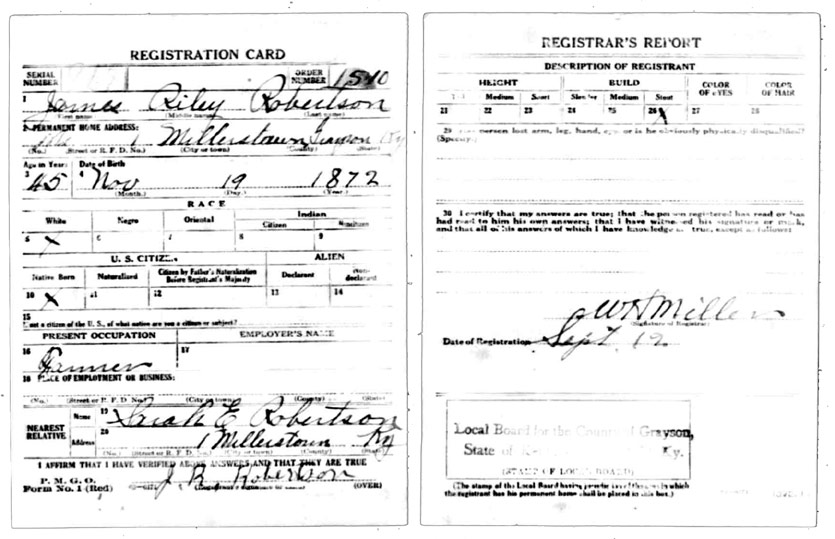 REGISTRATION CARD
SERIAL NUMBER
ORDER NUMBER 1510
1 James Riley Robertson
First name (Middle name) (Last name)
2 PERMANENT HOME ADDRESS:
1 Millerstown Grayson Ky
(No.) (Street or R. F. D. No.) (City or town) (County) (State)
Age in Years Date of Birth
3 45 4 Nov 19 1872
(Month.) (Day.) (Year.)
RACE
White Negro Oriental Indian
Citizen Noncitizen
5 x 6 7 8 9
U. S. CITIZEN ALIEN
Native Born Naturalized Citizen by Father's Naturalization Before Registrant's Majority Declarant Non-declarant
10 x 11 12 13 14
15
If not a citizen of the U. S., of what nation are you a citizen or subject?
PRESENT OCCUPATION EMPLOYER'S NAME
16 Farmer 17
18 PLACE OF EMPLOYMENT OR BUSINESS:
(No.) (Street or R. F. D. No.) (City or town) (County) (State)
NEAREST RELATIVE
Name 19 Sarah E Robertson
Address 20 1 Millerstown Ky
(No.) (Street or R. F. D. No.) (City or town) (County) (State)
I AFFIRM THAT I HAVE VERIFIED ABOVE ANSWERS AND THAT THEY ARE TRUE
P. M. G. O.
Form No. 1 (Red) J. R. Robertson (OVER)
REGISTRAR'S REPORT
DESCRIPTION OF REGISTRANT
HEIGHT BUILD COLOR OF EYES COLOR OF HAIR
Tall Medium Short Slender Medium Stout
21 22 23 24 25 26 x 27 28
29 person lost arm, leg, hand, eye, or is he obviously physically disqualified?
(Specify.)
30 I certify that my answers are true; that the person registered has read or has
had read to him his own answers; that I have witnessed his signature or mark,
and that all of his answers of which I have knowledge are true, except as follows:
W H Miller
(Signature of Registrar)
Date of Registration Sept 12
Local Board for the County of Grayson,
State of Ky.
(STAMP OF LOCAL BOARD)
(The stamp of the Local Board having jurisdiction of the area in which
the registrant has his permanent home shall be placed in this box.)
(OVER)